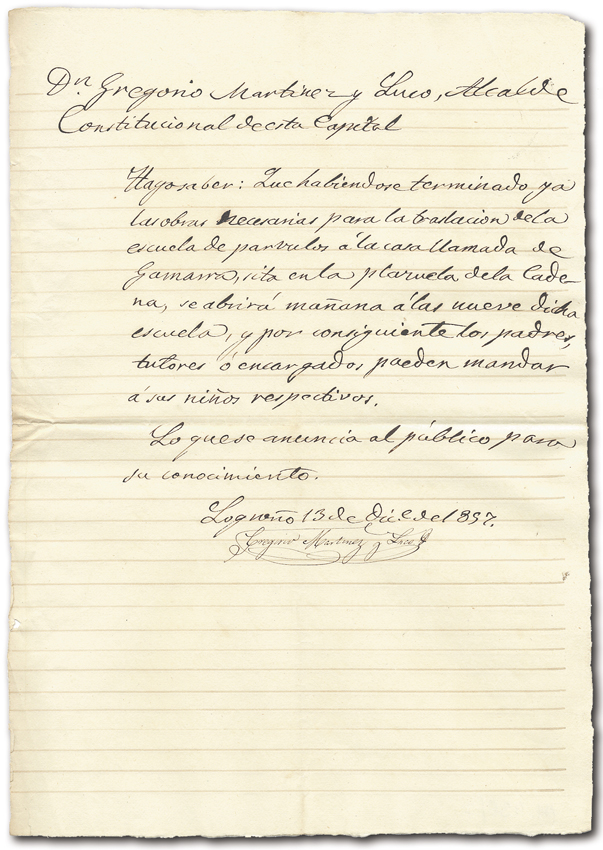 Dn Gregorio Martinez y Luco, Alcalde
Constitucional de esta Capital
Hago saber: Que habiendose terminado ya
las obras necesarias para la traslacion de la
escuela de parvulos á la casa llamada de
Gamarra, sita en la plazuela de la Cade-
na, se abrirá mañana á las nueve dicha
escuela, y por consiguiente los padres,
tutores ó encargados pueden mandar
á sus niños respectivos.
Lo que se anuncia al público para
su conocimiento.
Logroño 13 de Dic.e de 1857.
Gregorio Martinez y Luco